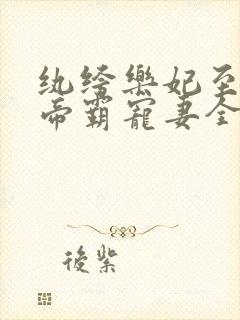 纨绔乐妃至
帝霸寵妻全
後紫